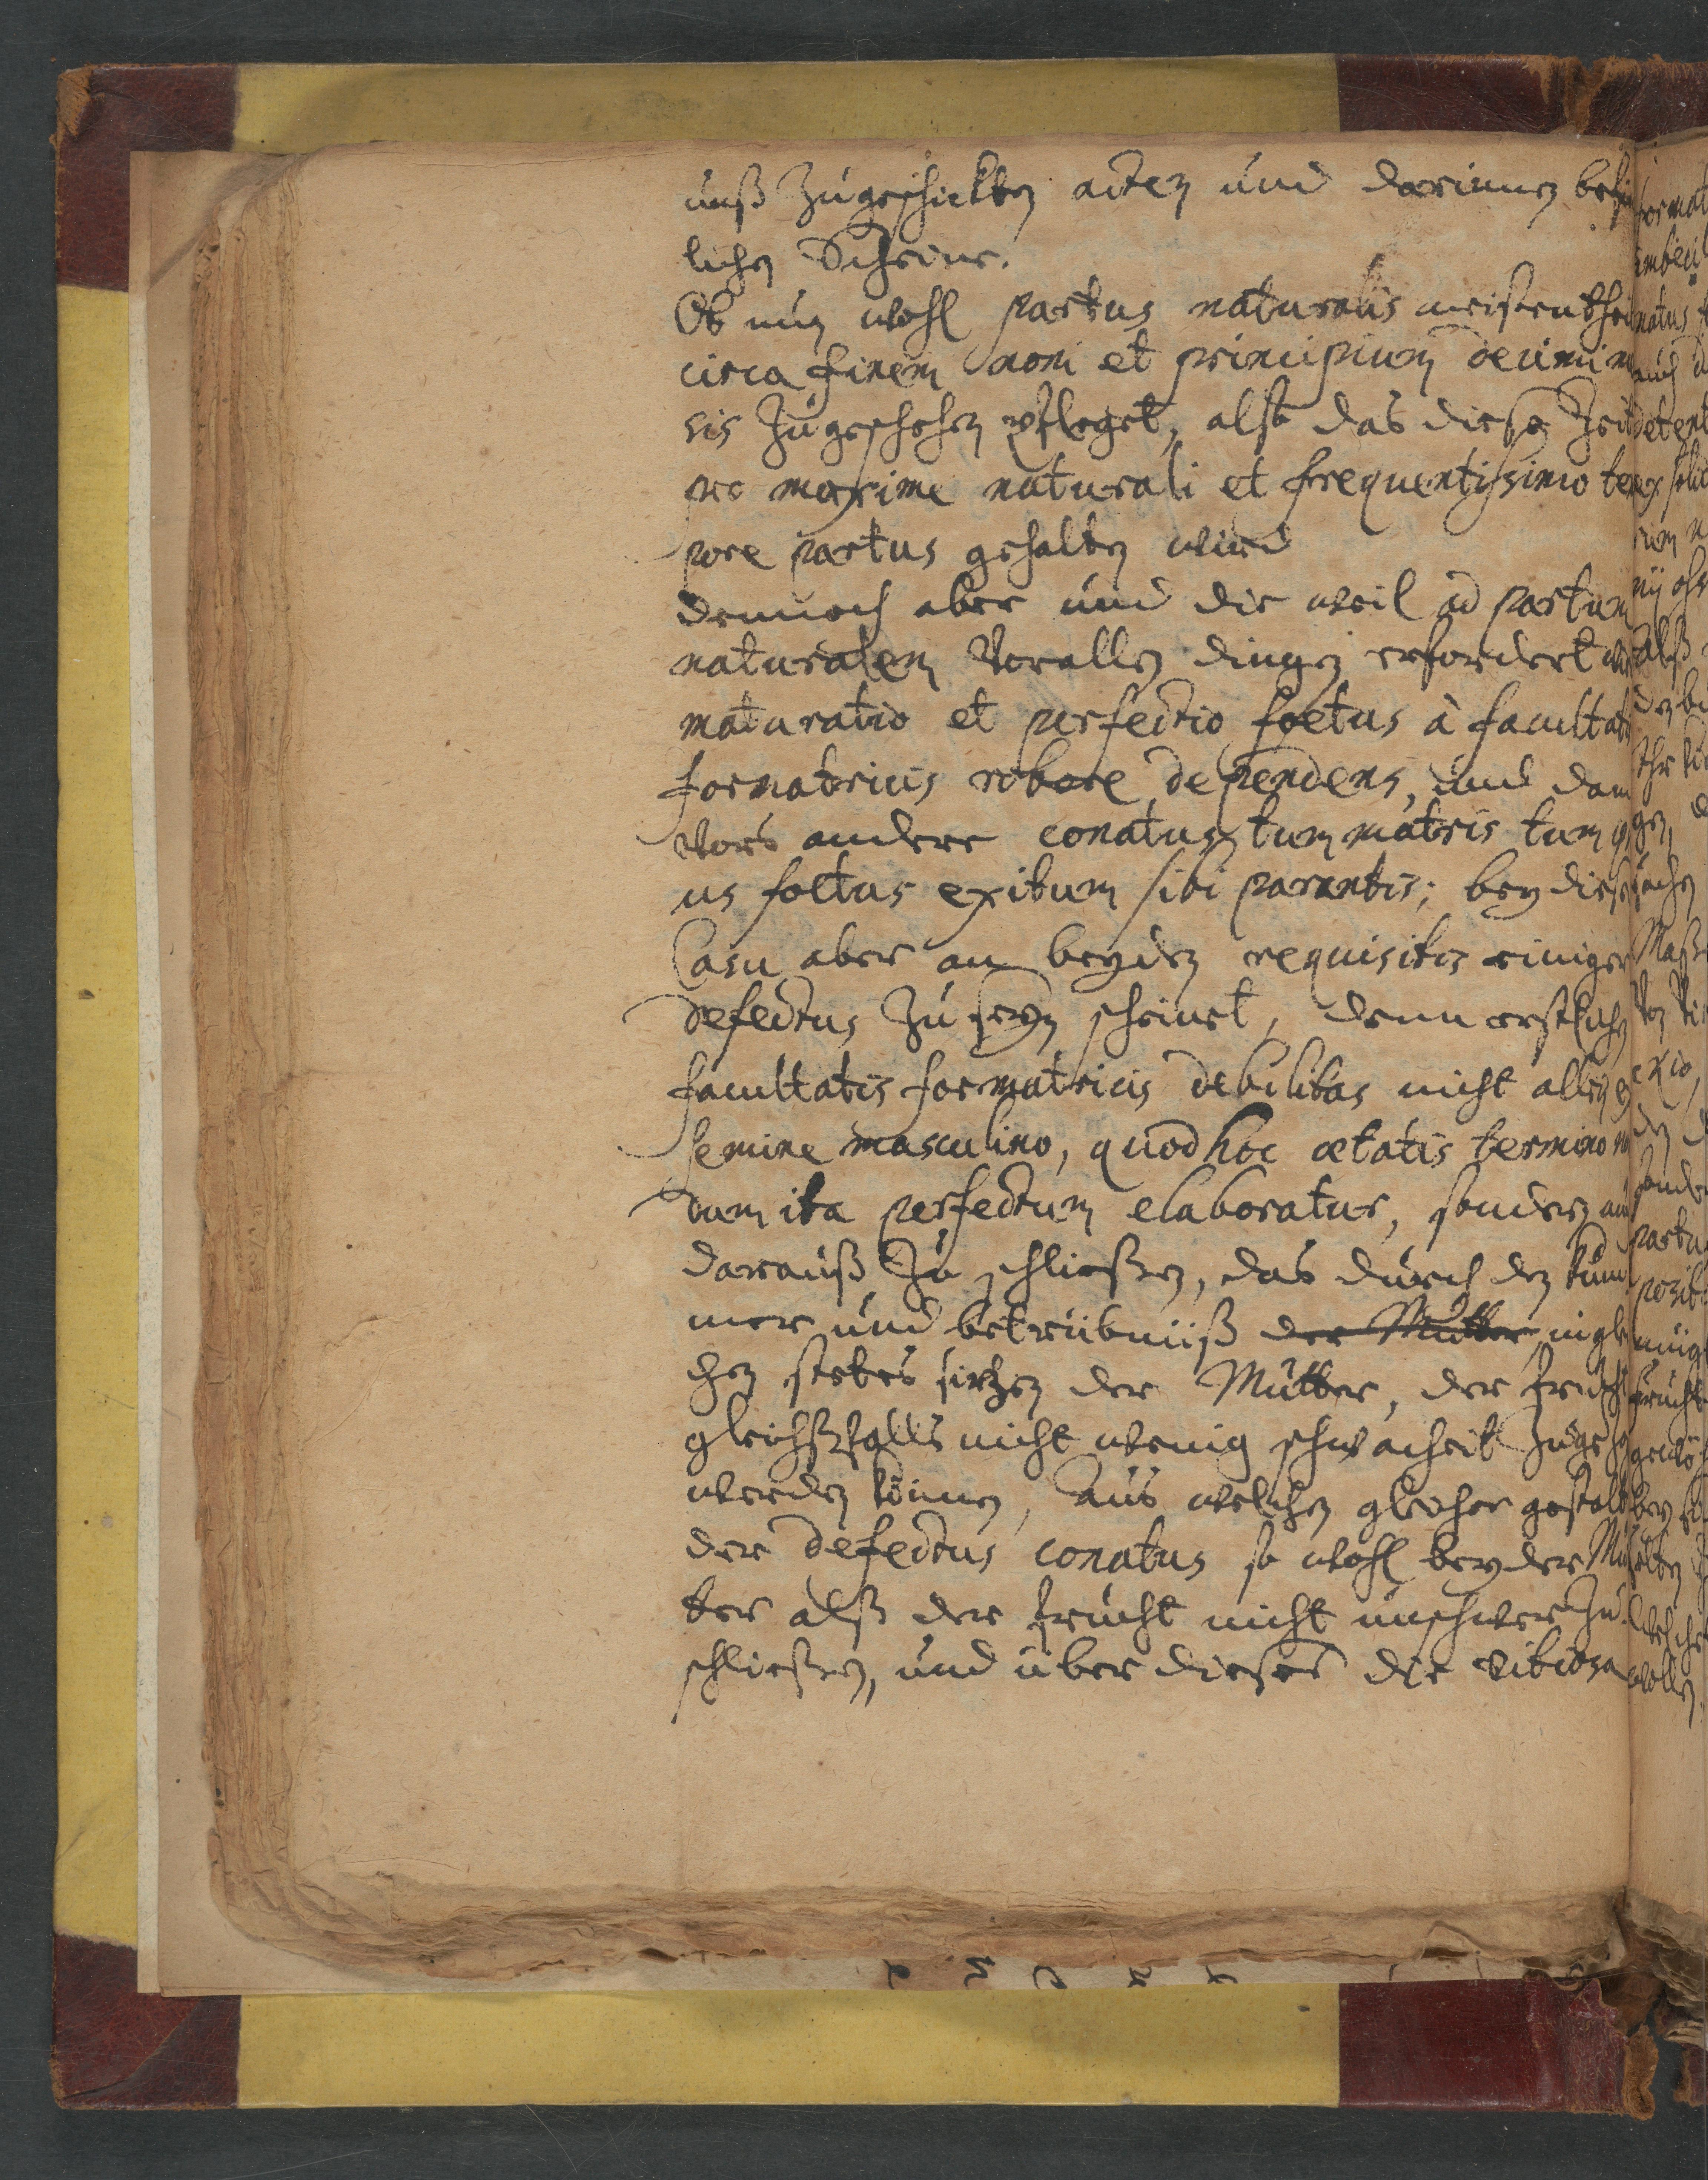 unß zugeschickten acten und darinnen befin
lichen Scheine.
Ob nun wohl partus naturalis meistentheil
circa finem noni et principium decimi m
sis zugeschehen pfleget, alß das diese Zeit
pro maxime naturali et frequentissimo tem
pore partus gehalten wird
dennoch aber und die weil ad partum
naturalem vorallen dingen erfordert wir
maturatio et perfectio foetus à facultatis
formatricis robore dependens, und dann
vors andere conatus tum matris tum
us foetus exitum sibi parantis; bey diesem
Casu aber an beyden requisitis einiger
defectus zu seyn scheinet, denn erstlichen
facultatis formatricis debilitas nicht allein
semine masculino, quod hoc ætatis termino n
dum ita perfectum elaboratur, sondern auch
darauß zu schließen, das durch den kum
mer und betrübnüß der Mutter, ingle
chen stetes siechen der Mutter, der frucht
gleichßfalls nicht wenig schwacheit zugezogen
werden können, aus welchen gleicher gestalt
der defectus conatus so wohl bey der Mut
ter alß der frucht nicht unschwer zu
schließen, und über dieses die vitiosa
format
imbecil
natus
auch
detent
ex
rum
alß
den
Ihr
gen,
sachen
Maß
von
exio,
den
sonder
partu
posit
frucht
bey
welche
wollen.